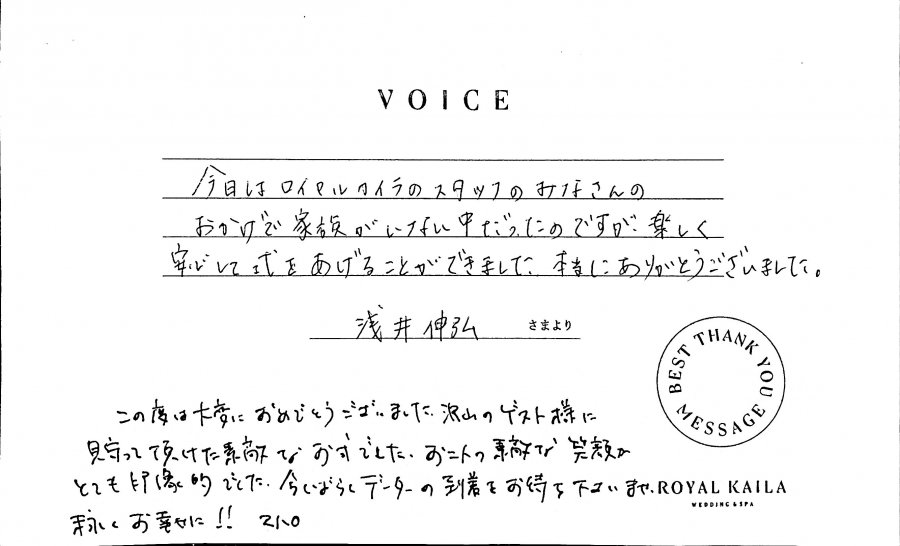 VOICE
今日はロイヤルカイラのスタッフのみなさんの
おかげで家族がいない中だったのですが、楽しく
安心して式をあげることができました。本当にありがとうございました。
浅井伸弘 さまより
BEST THANK YOU MESSAGE
この度は大変におめでとうございました。沢山のゲスト様に
見守って頂けた素敵なお式でした。お二人の素敵な笑顔が
とても印象的でした。今しばらくデーターの到着をお待ち下さいませ。
ROYAL KAILA
WEDDING & SPA
末永くお幸せに!!